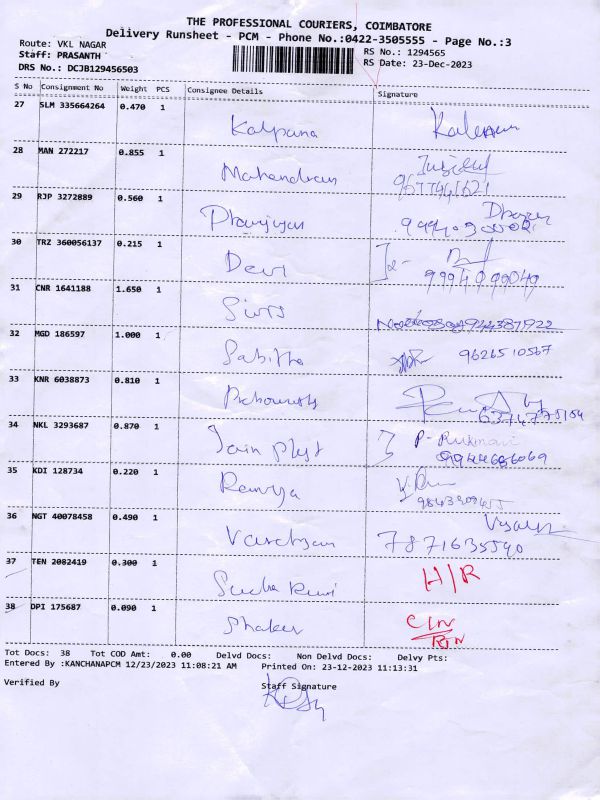 THE PROFESSIONAL COURIERS, COIMBATORE
Delivery Runsheet - PCM - Phone No.:0422-3505555 - Page No.:3
Route: VKL NAGAR RS No.: 1294565
Staff: PRASANTH RS Date: 23-Dec-2023
DRS No.: DCJB129456503
S No Consignment No Weight PCS Consignee Details Signature
27 SLM 335664264 0.470 1 Kalpana
28 MAN 272217 0.855 1 Mahendran
9677461621
29 RJP 3272889 0.560 1
30 TRZ 360056137 0.215 1 Devi
9994099049
31 CNR 1641188 1.650 1
32 MGD 186597 1.000 1 Sabitha 9626510567
33 KNR 6038873 0.810 1
6374775104
34 NKL 3293687 0.870 1 Jain P. Rukmani
9944686069
35 KDI 128734 0.220 1 Ramya
36 NGT 40078458 0.490 1
7871635540
37 TEN 2082419 0.300 1 H/R
38 DPI 175687 0.090 1
Tot Docs: 38 Tot COD Amt: 0.00 Delvd Docs: Non Delvd Docs: Delvy Pts:
Entered By :KANCHANAPCM 12/23/2023 11:08:21 AM Printed On: 23-12-2023 11:13:31
Verified By Staff Signature